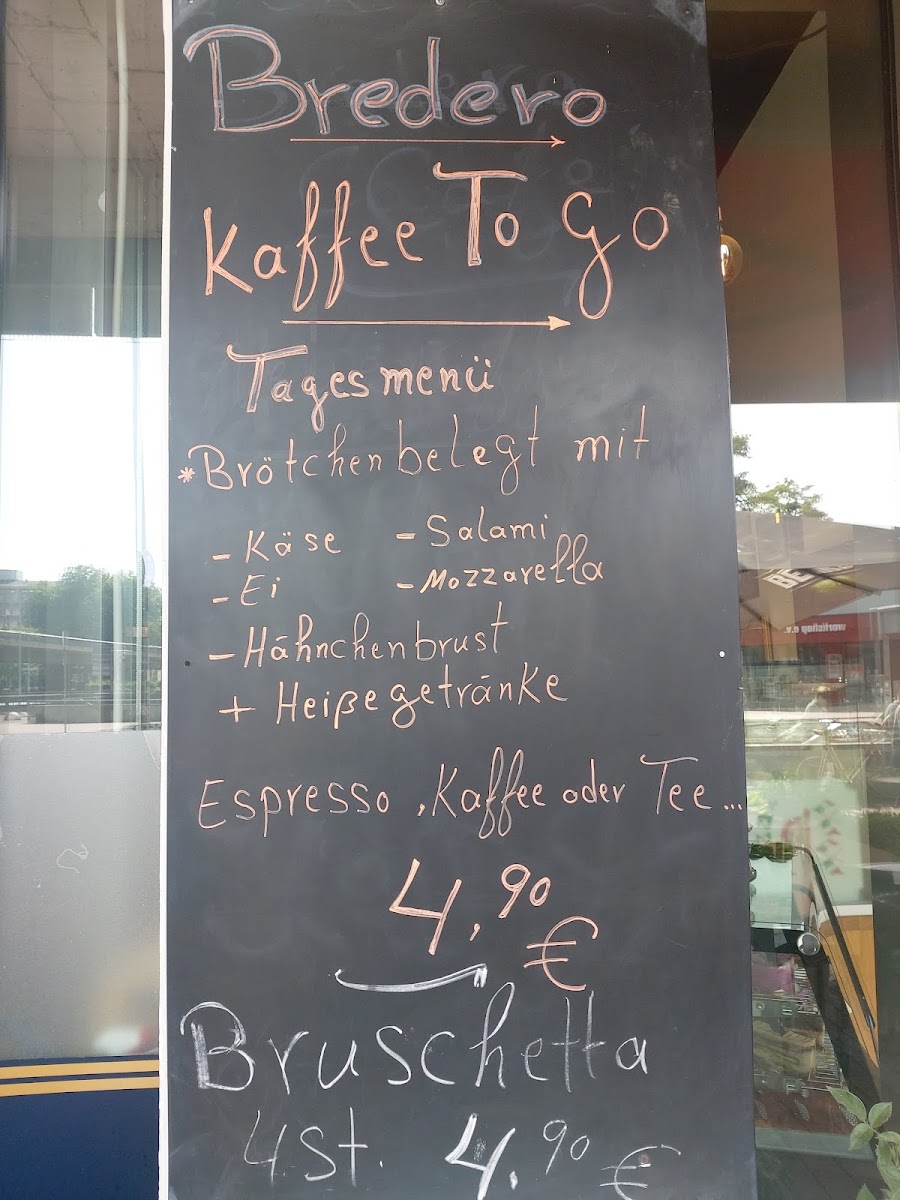 Bredero
Kaffee To Go
Tagesmenü
*Brötchen belegt mit
- Käse - Salami
- Ei - Mozzarella
- Hähnchenbrust
+ Heißegetränke
Espresso, Kaffee oder Tee...
4,90 €
Bruschetta
4 St. 4,90 €